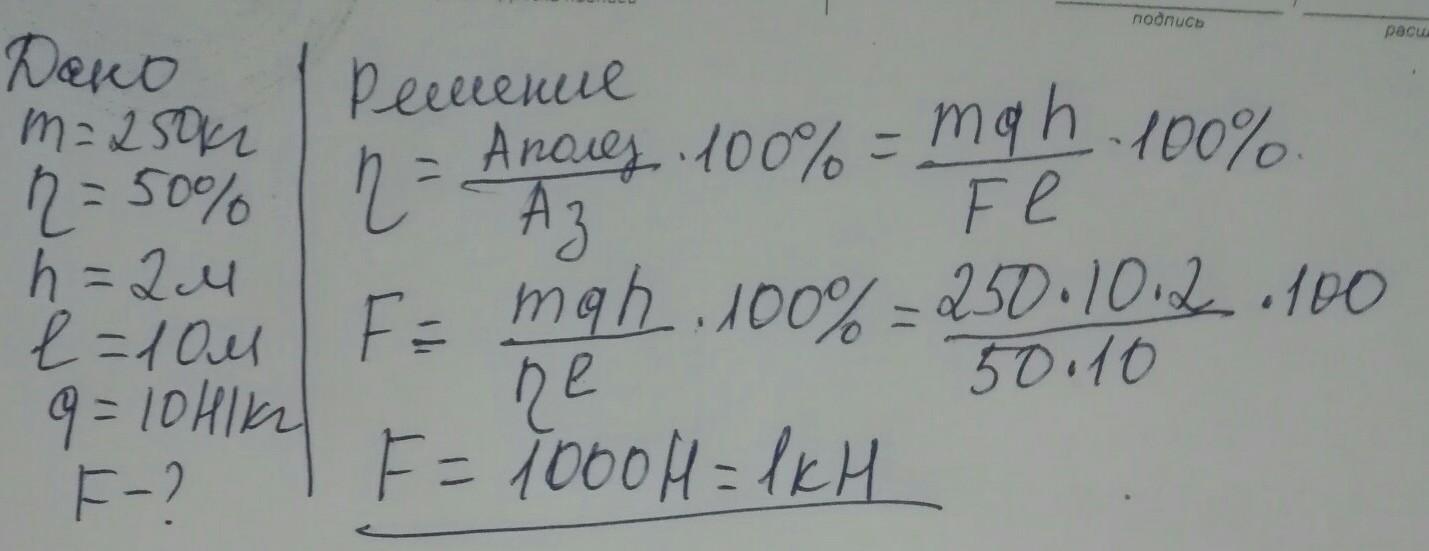 подпись
Дано
m = 250кг
η = 50%
h = 2м
ℓ = 10м
g = 10Н/кг
F - ?
Решение
η = Aполез / Aз · 100% = mgh / Fℓ · 100%.
F = mgh / ηℓ · 100% = 250·10·2 / 50·10 · 100
F = 1000Н = 1кН